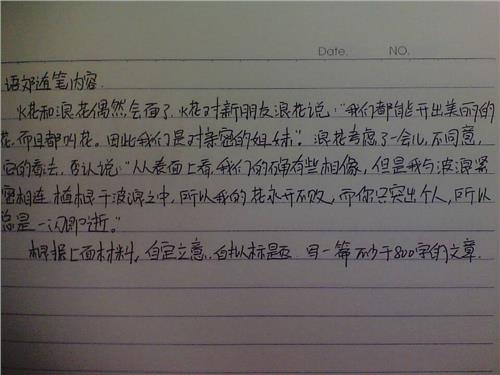 Date.    NO.
语郊随笔内容.
火花和浪花偶然会面了.火花对新朋友浪花说:"我们都能开出美丽的
花.而且都叫花。因此我们是对亲密的姐妹"。浪花考虑了一会儿,不同意
它的看法,否认说:"从表面上看,我们的确有些相像,但是我与波浪紧
密相连.植根于波浪之中,所以我的花永开不败,而你只突出个人,所以
总是一闪即逝。"
根据上面材料,自定立意.自拟标题 写一篇不少于800字的文章.